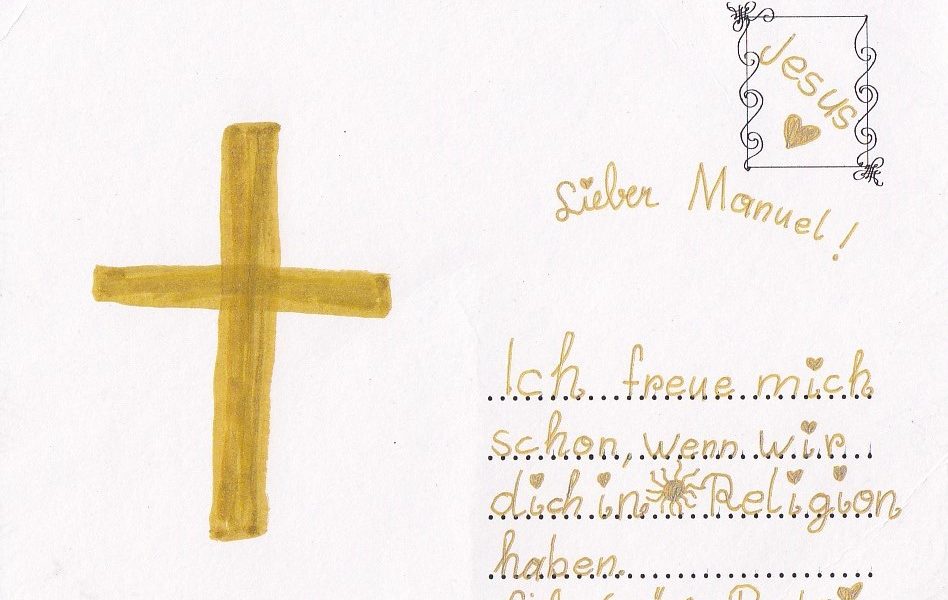 Jesus
Lieber Manuel!
Ich freue mich
schon, wenn wir
dich in Religion
haben.